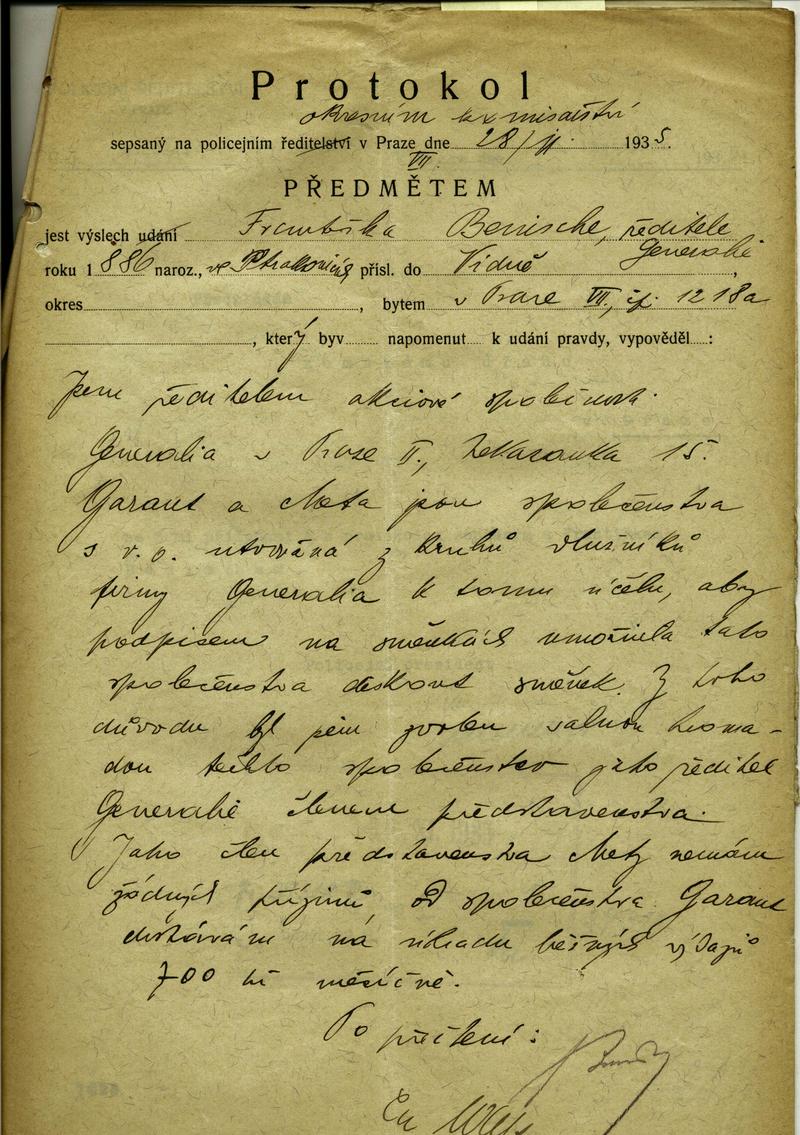 Protokol
okresním komisařství
sepsaný na policejním ředitelství v Praze dne 28/II. 1935.
VII
PŘEDMĚTEM
jest výslech udání Františka Benische, ředitele
Generalie
roku 1886 naroz., v přísl. do Vídně,
okres, bytem v Praze VII., čp. 1218a
, který byv napomenut k udání pravdy, vypověděl:
Jsem ředitelem akciové společnosti
Generalia v Praze II., 15.
Garant a Meta jsou společenstva
s r. o. utvořená z kruhů dlužníků
firmy Generalia k tomu účelu, aby
podpisem na směnkách umožnila tato
společenstva diskont směnek. Z toho
důvodu byl jsem zvolen valnou hroma-
dou těchto společenstev jako ředitel
Generalie členem představenstva.
Jako člen představenstva Mety nemám
žádných příjmů, od společenstva Garant
dostávám na úhradu běžných výdajů
700 Kč měsíčně.
Po přečtení: